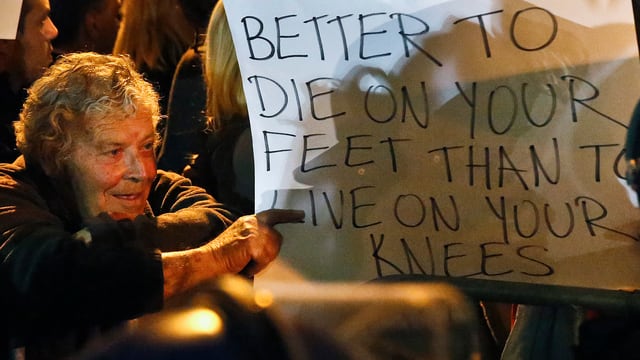 BETTER TO
DIE ON YOUR
FEET THAN TO
LIVE ON YOUR
KNEES